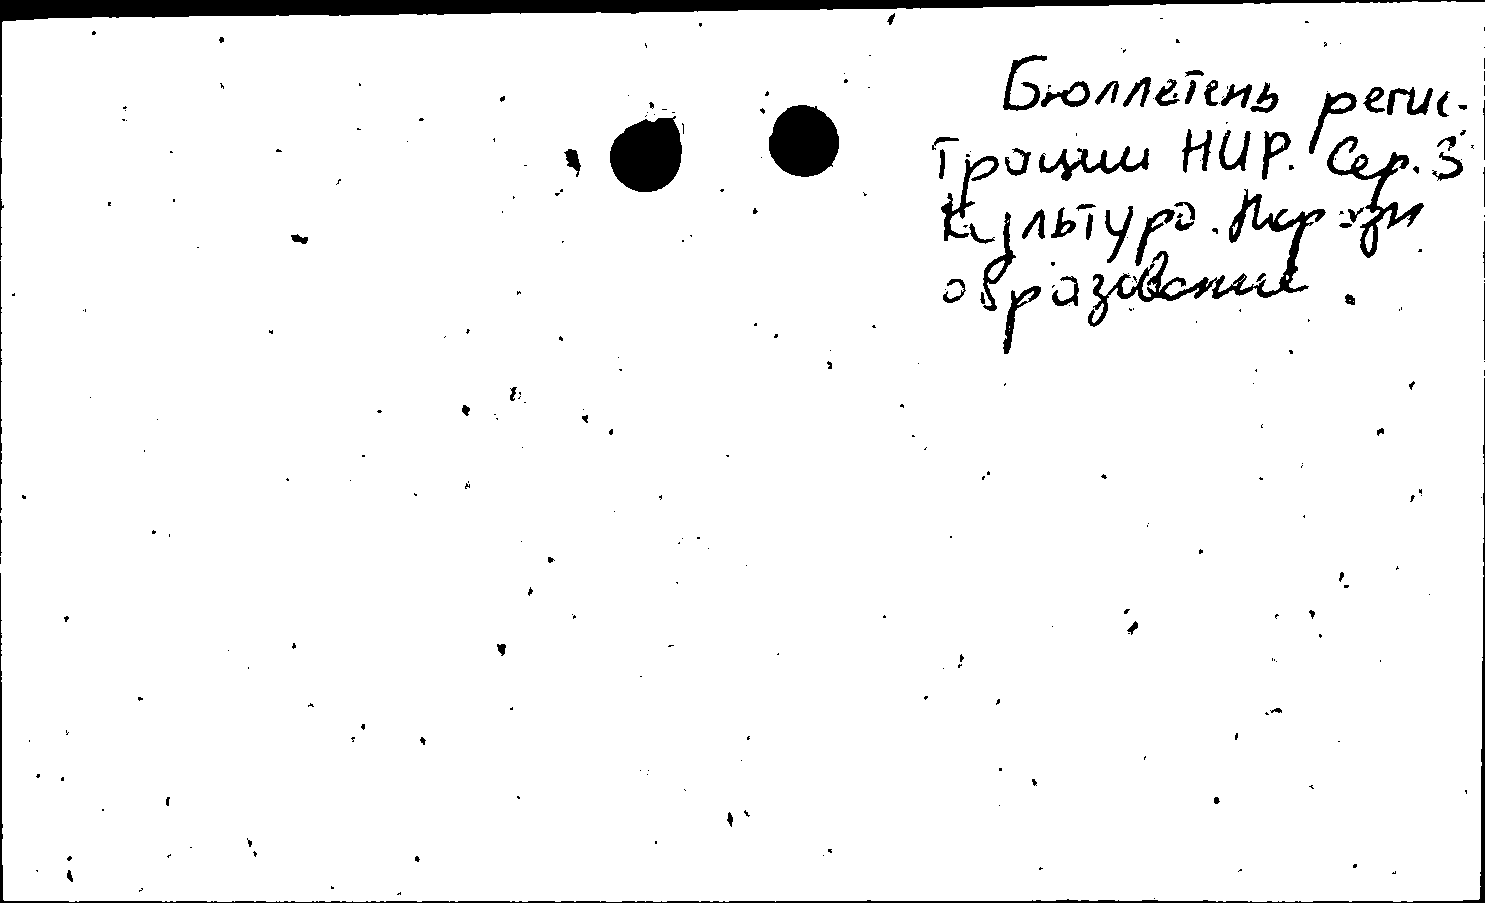 Бюллетень регис-
трации НИР. Сер. 3
Культура.
образование.